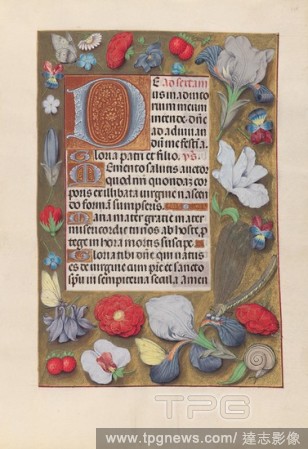 Ead sextam
D
us in adiuto
rium meum
intende dñe
ad adiuuan
dum me festina.
Gloria patri et filio. ps.
Memento salutis auctor
quod nñi quondam cor
poris ex illibata virgine nascen
do formam sumpseris.
Maria mater gratie mater
misericordie tu nos ab hoste p
tege in hora mortis suscipe.
Gloria tibi dñe qui natus
es de virgine cum pře et sancto
spũ in sempiterna secula amen
TPG
www.tpgnews.com/ 達志影像